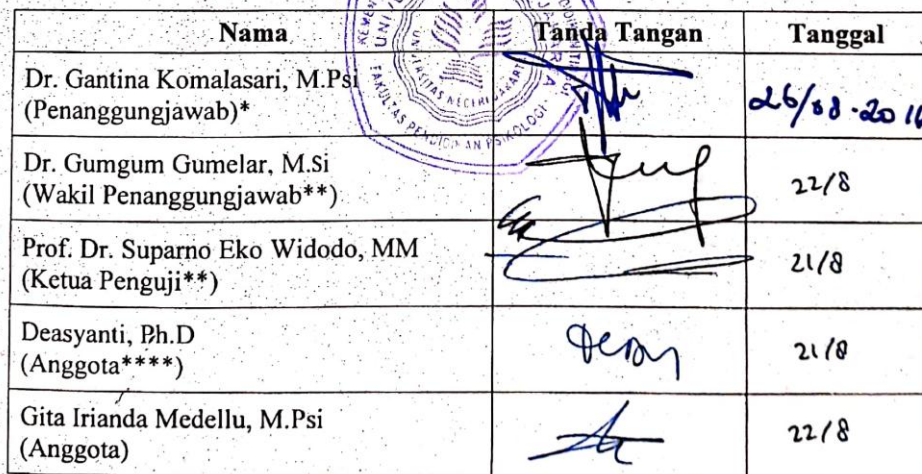 Nama Tanda Tangan Tanggal
Dr. Gantina Komalasari, M.Psi
(Penanggungjawab)*
Dr. Gumgum Gumelar, M.Si
(Wakil Penanggungjawab**) 22/8
Prof. Dr. Suparno Eko Widodo, MM
(Ketua Penguji**) 21/8
Deasyanti, Ph.D
(Anggota****) 21/8
Gita Irianda Medellu, M.Psi
(Anggota) 22/8
FAKULTAS PENDIDIKAN PSIKOLOGI